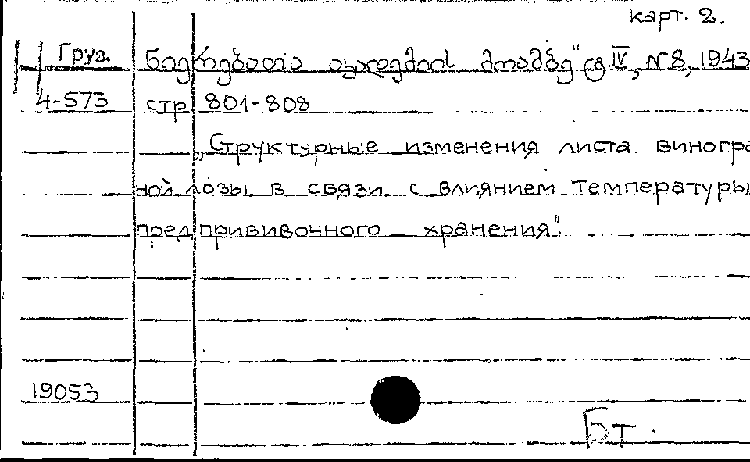 карт. 2.
Груз. მეცნიერებათა აკადემიის მოამბე" ტ IV, №8, 1943
4-573 стр 801-808
„Структурные изменения листа виногра
ной лозы в связи с влиянием температуры
предпрививочного хранения".
19053
Бт.